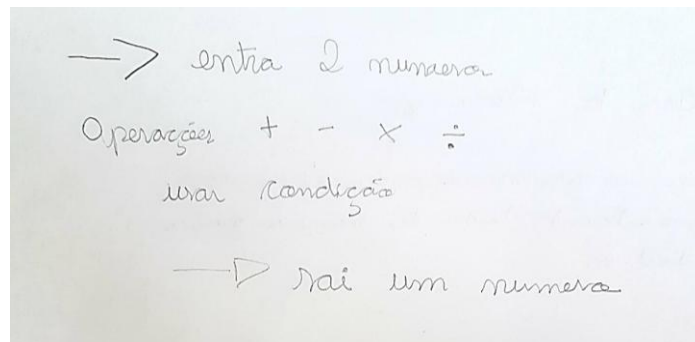 → entra 2 numeros
Operações + - × ÷
usar condição
→ sai um numero